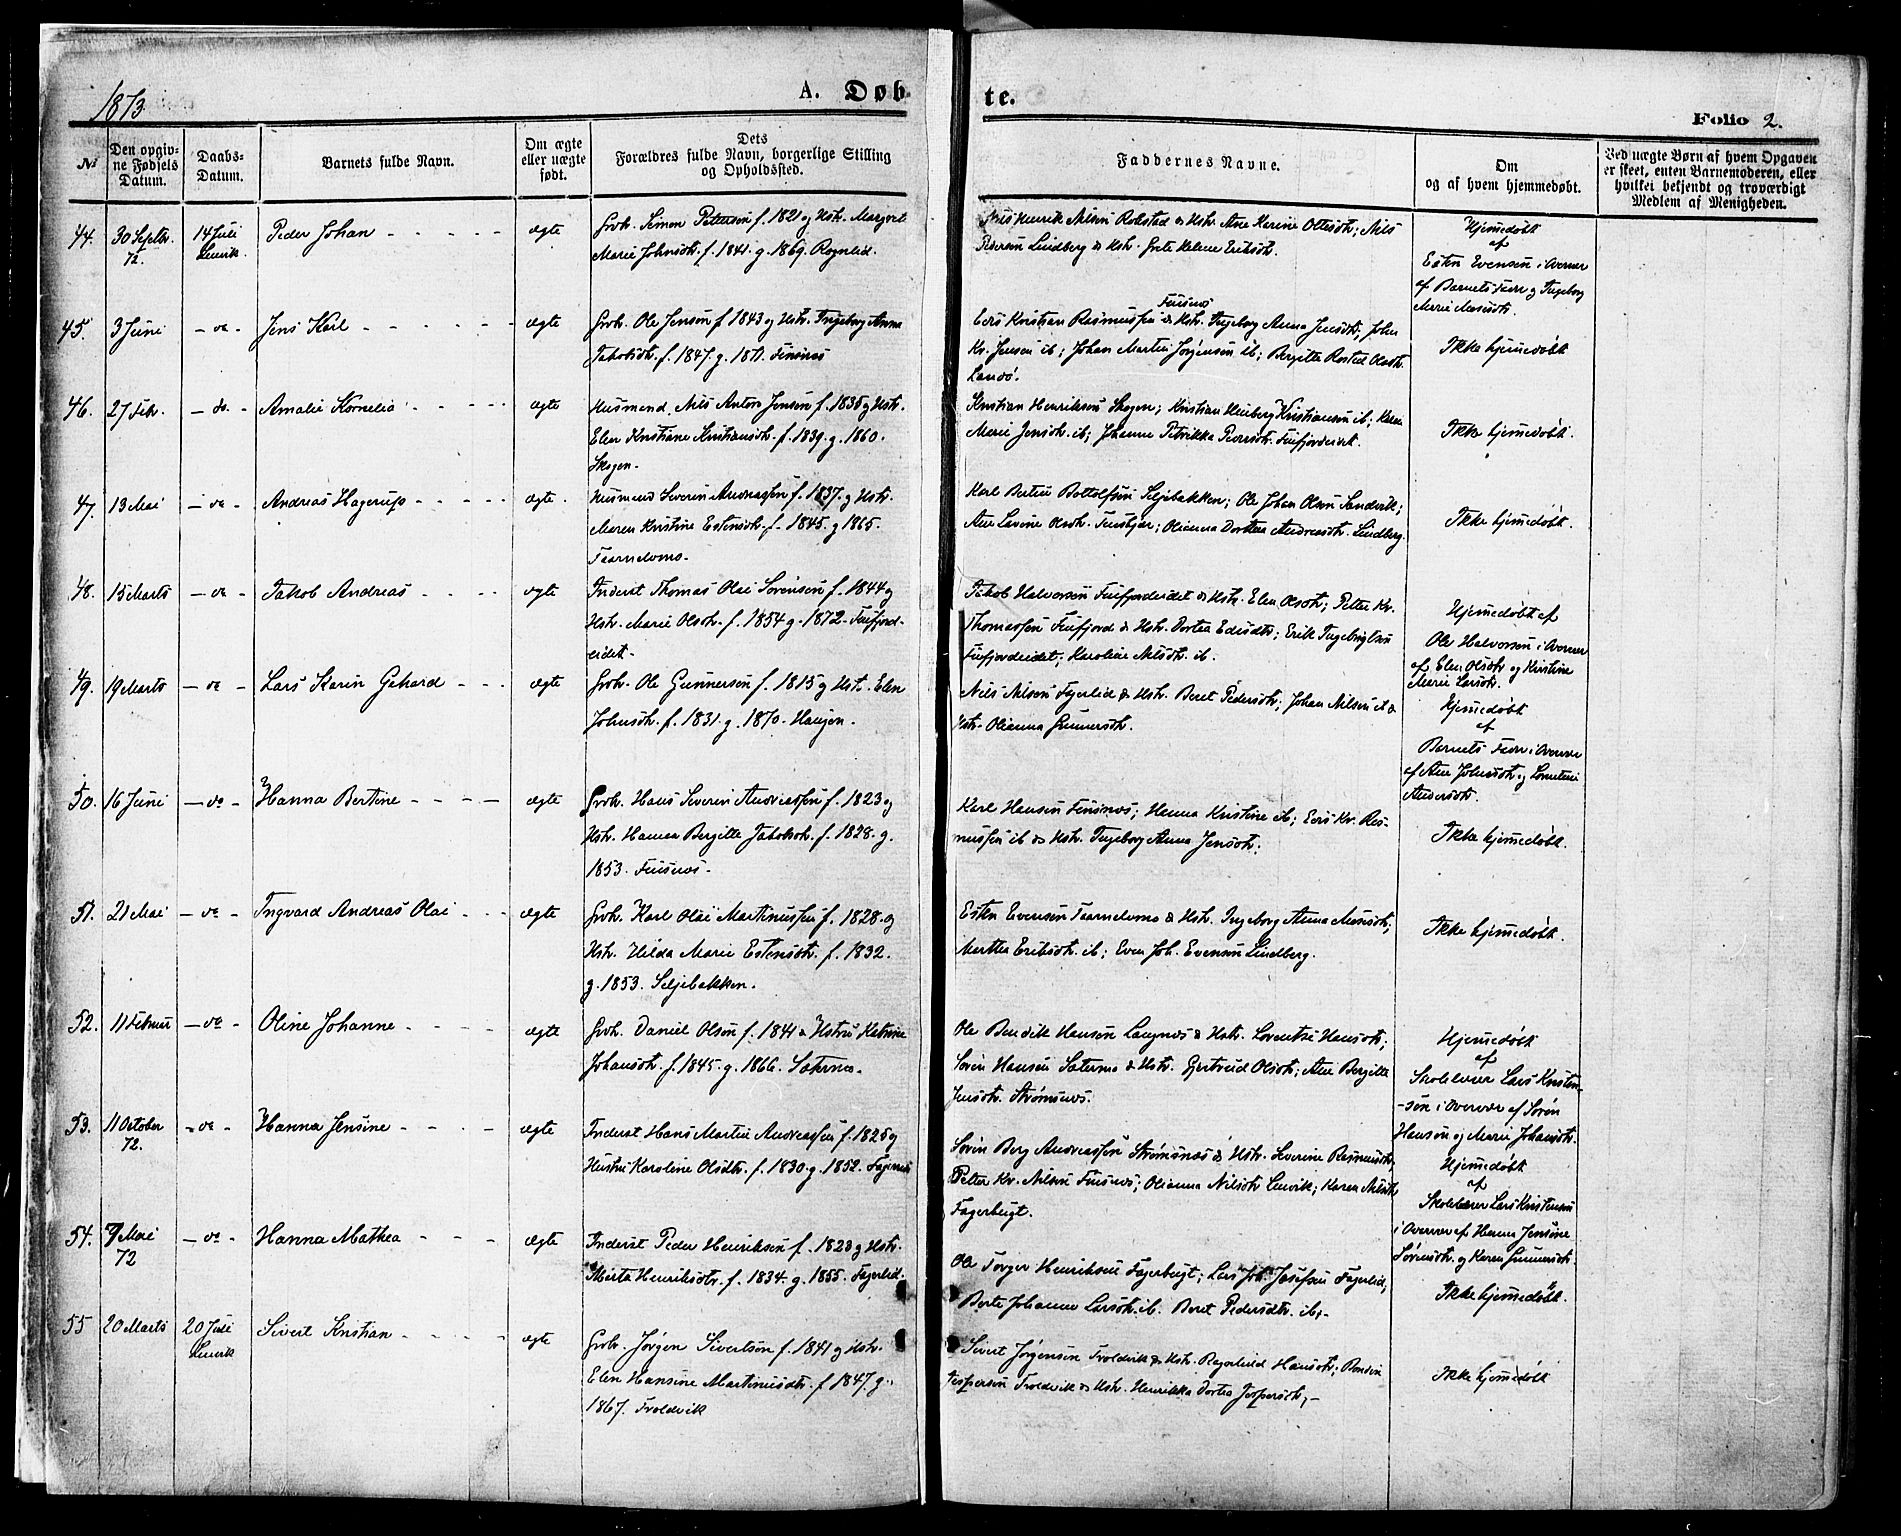 1873
A. Døb
te.
Folio 2.
No
Den opgiv-
ne Fødsels
Datum.
Daabs-
Datum.
Barnets fulde Navn.
Om ægte
eller uægte
født.
Dets
Forældres fulde Navn, borgerlige Stilling
og Opholdssted.
Faddernes Navne.
Om
og af hvem hjemmedøbt.
Ved uægte Børn af hvem Opgaven
er skeet, enten Barnemoderen, eller
hvilket bekjendt og troværdigt
Medlem af Menigheden.
44.
30 Septbr.
72.
14 Juli
Lenvik.
Peder Johan
ægte
Grbr. Simon Petersen f. 1821 og Hstr. Margret
Marie Johnsdtr. f. 1841. g. 1869. Rognlid.
Henrik Nilsen Robstad & Hstr. Ane Karine Ottesdtr; Nils
Pedersen Lindberg & Hstr. Grete Helene Eriksdtr.
Hjemedøbt
af
Esten Evensen i Overvær
af Barnets Fader og Ingeborg
Marie Monsdtr.
45.
3 Juni
- do -
Jens Karl
ægte
Grbr. Ole Jensen f. 1843 og Hstr. Ingeborg Anna
Jakobsdtr. f. 1847. g. 1871. Finsnes
Finsnes
Edis Kristian Rasmussen & Hstr. Ingeborg Anna Jensdtr; John
Kr. Jensen ib; Johan Martin Jørgensen ib; Bergitte Rostad Olsdtr.
Landø.
Ikke hjemedøbt
46.
27 Febr.
- do -
Amalie Kornelia
ægte
Husmand, Nils Anton Jensen f. 1835 og Hstr.
Elen Kristiane Kristiansdtr. f. 1839. g. 1860.
Skogen.
Kristian Henriksen Skogen; Kristian Hinberg Kristiansen ib; Karen
Marie Jensdtr. ib; Johanna Petrikka Pedersdtr. Finfjordeidet.
Ikke hjemedøbt.
47.
13 Mai
- do -
Andreas Hagerup
ægte.
Husmand Severin Andreassen f. 1837. og Hstr.
Maren Kristine Estensdtr. f. 1845. g 1865.
Taarnelvmo.
Karl Bertin Bottolfsen Seljebakken; Ole Johan Olsen Sandvik;
Ane Lovine Olsdtr. Finskjær; Olianna Dorthea Andreasdtr. Lindberg.
Ikke hjemedøbt.
48.
15 Marts
- do -
Jakob Andreas
ægte
Inderst Thomas Olai Sørensen f. 1844 og
Hstr. Marie Olsdtr. f. 1854 g. 1872. Finfjord-
eidet.
Jakob Halvorsen Finfjordeidet & Hstr. Elen Olsdtr; Petter Kr.
Thomassen Finfjord & Hstr. Dortea Edisdtr; Erik Ingebrigtsen
Finfjordeidet; Karoline Nilsdtr. ib.
Hjemedøbt af
Ole Halvorsen i Overvær
af Elen Olsdtr og Kristine
Marie Larsdtr.
49.
19 Marts
- do -
Lars Karin Gehard
ægte
Grbr. Ole Gunnersen f. 1815 og Hstr. Elen
Johnsdtr. f. 1831. g. 1870. Haugen.
Nils Nilsen Fagerlid & Hstr. Beret Pedersdtr; Johan Nilsen ib &
Hstr. Olianna Gunnersdtr.
Hjemedøbt
af
Barnets Fader i Overvær
af Ane Johnsdtr og Lorentine
Andersdtr.
50.
16 Juni
- do -
Hanna Bertine
ægte
Grbr. Hans Severin Andreassen f. 1823 og
Hstr. Hanna Bergitte Jakobsdtr. f. 1828. g.
1853. Finsnes.
Karl Hansen Finsnes; Hanna Kristine ib; Edis Kr. Ras-
mussen ib & Hstr. Ingeborg Anna Jensdtr.
Ikke hjemedøbt.
51.
21 Mai
- do -
Ingvard Andreas Olai
ægte
Grbr. Karl Olai Martinussen f. 1828. og
Hstr. Hilda Marie Estensdtr. f. 1832.
g. 1853. Seljebakken.
Esten Evensen Taarnelvmo & Hstr. Ingeborg Anna Monsdtr;
Marthea Eriksdtr. ib; Even Joh. Evensen Lindberg.
Ikke hjemedøbt.
52.
11 Februar
- do -
Oline Johanne
ægte
Grbr. Daniel Olsen f. 1841 & Hstru Katrine
Johansdtr. f. 1845. g. 1866. Sæternes.
Ole Bendik Hansen Langnes & Hstr. Lorentse Hansdtr;
Sørin Hansen Sætermo & Hstr. Gjertrud Olsdtr; Ane Bergitte
Jensdtr. Strømsnes.
Hjemedøbt
af
Skolelærer Lars Kristen-
-sen i Overvær af Sørin
Hansen og Marie Johansdtr.
53.
11 October
72.
- do -
Hanna Jensine
ægte
Inderst Hans Martin Andreassen f. 1825 og
Hustru Karoline Olsdtr. f. 1830 g. 1852. Fagernes
Sørin Berg Andreassen Strømsnes & Hstr. Severine Rasmusdtr,
Petter Kr. Nilsen Finsnes; Olianna Nilsdtr Lenvik; Karen Nilsdtr
Fagerbugt.
Hjemedøbt
af
Skolelærer Lars Kristensen
i Overvær af Hanna Jensine
Sørensdtr. og Karen Gunnersdtr.
54.
7 Mai
72
- do -
Hanna Mathea
ægte
Inderst Peder Henriksen f. 1823 og Hstr.
Marta Henriksdtr. f. 1834. g. 1855. Fagerlid.
Ole Torger Henriksen Fagerbugt; Lars Joh. Josefsen Fagerlid;
Berte Johanna Larsdtr. ib. Beret Pedersdtr. ib.
Ikke hjemedøbt.
55
20 Marts
20 Juli
Lenvik
Sivert Kristian
ægte
Grbr. Jørgen Sivertsen f. 1841 og Hstr.
Elen Hansine Martinusdtr. f 1847. g.
1867. Troldvik
Sivert Jørgensen Troldvik & Hstr. Ragnhild Hansdtr; Bendix
Jespersen Troldvik & Hstr. Henrikka Dortea Jespersdtr;
Ikke hjemedøbt